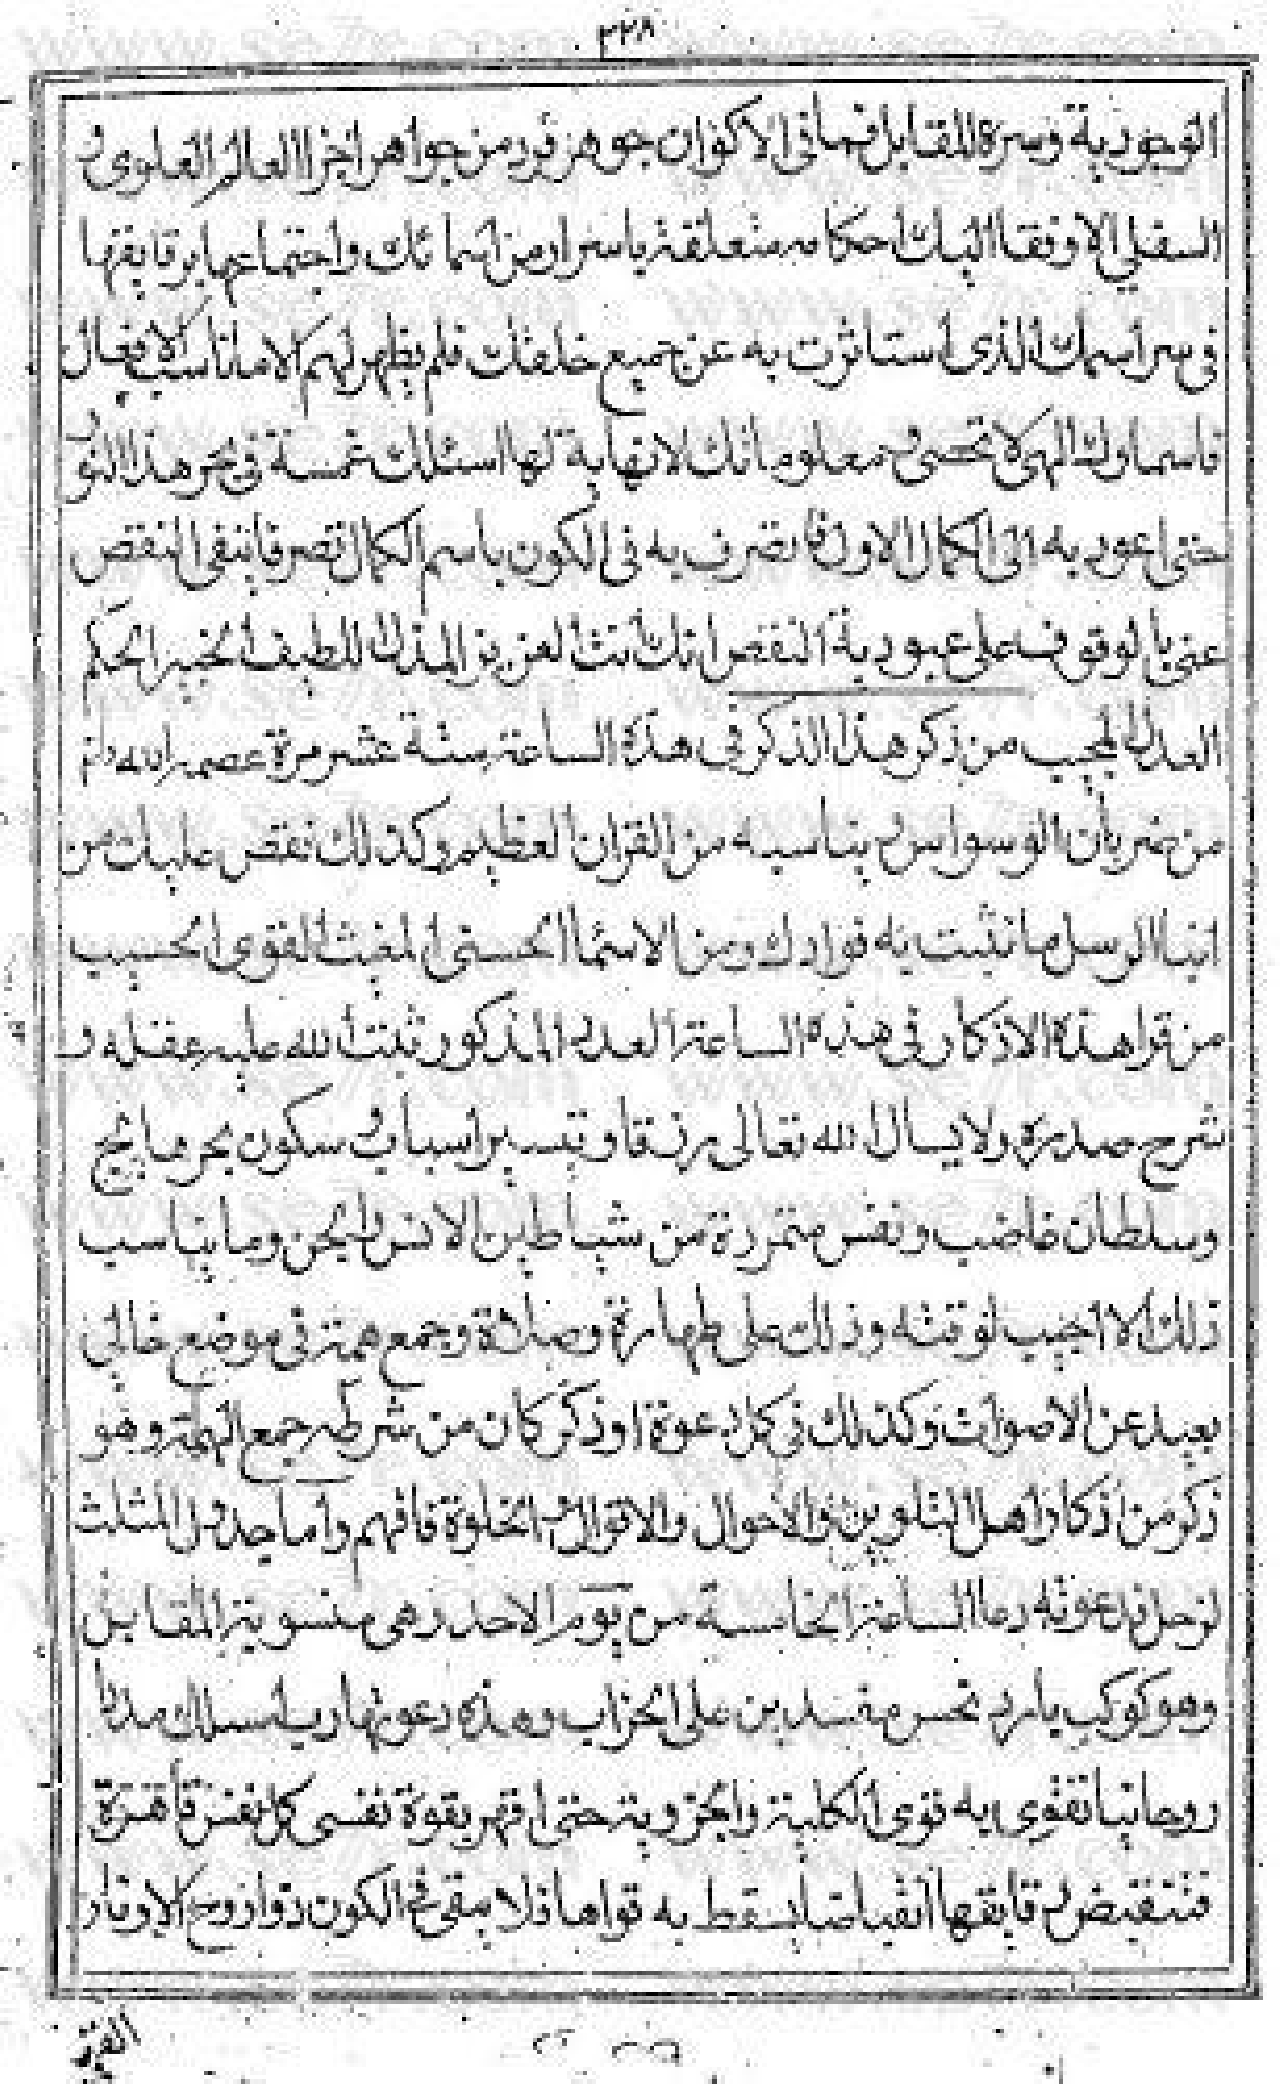 ٣٢٨
الوجودية وسره المقابل فما في الاكوان جوهر فرد من جواهر اجزا العالم العلوي و
السفلي الا وفقا اليك احكامه متعلقة باسرار من اسمائك واجتماعها برقايقها
في سر اسمك الذي استاثرت به عن جميع خلقك فلم يظهر لهم الا ما ناسب الافعال
فاسماوك الهي لا تحصى ومعلوماتك لا نهاية لها اسئلك غمسة في بحر هذا النو
حتى اعود به الى الكمال الاول فاتصرف به في الكون باسم الكمال تصرفا ينفى النقص
عني بالوقوف على عبودية النقص انك انت العزيز المذل اللطيف الخبير الحكم
العدل المجيب من ذكر هذا الذكر في هذه الساعة ستة عشر مرة عصمه الله دايم
من ضربان الوسواس ويناسبه من القران العظيم وكذلك نقص عليك من
انبا الرسل ما نثبت به فوادك ومن الاسما الحسنى المغيث القوي الحسيب
من قرا هذه الاذكار في هذه الساعة العدد المذكور ثبت الله عليه عقله و
شرح صدره ولا يسال الله تعالى رزقا وتيسير اسباب وسكون بحر هايج
وسلطان غاضب ونفس متمردة من شياطين الانس والجن وما يناسب
ذلك الا اجيب لوقته وذلك على طهارة وصلاة وجمع همة في موضع خالي
بعيد عن الاصوات وكذلك في كل دعوة او ذكر كان من شرطه جمع الهمة وهو
ذكر من اذكار اهل التلوين والاحوال والاقوال و الخلوة فافهم واما جدول المثلث
لزحل فدعوته دعا الساعة الخامسة من يوم الاحد وهي منسوبة المقابل
وهو كوكب بارد نحس مفسد يدين على الخراب وهذه دعوتها رب اسئلك مددا
روحانيا تقوى به قوى الكلية والجزوية حتى اقهر بقوة نفسي كل نفس قاهرة
فتنقبض رقايقها انقباضا يسقط به قواها فلا يبقى في الكون ذو روح الا ونار
القهر